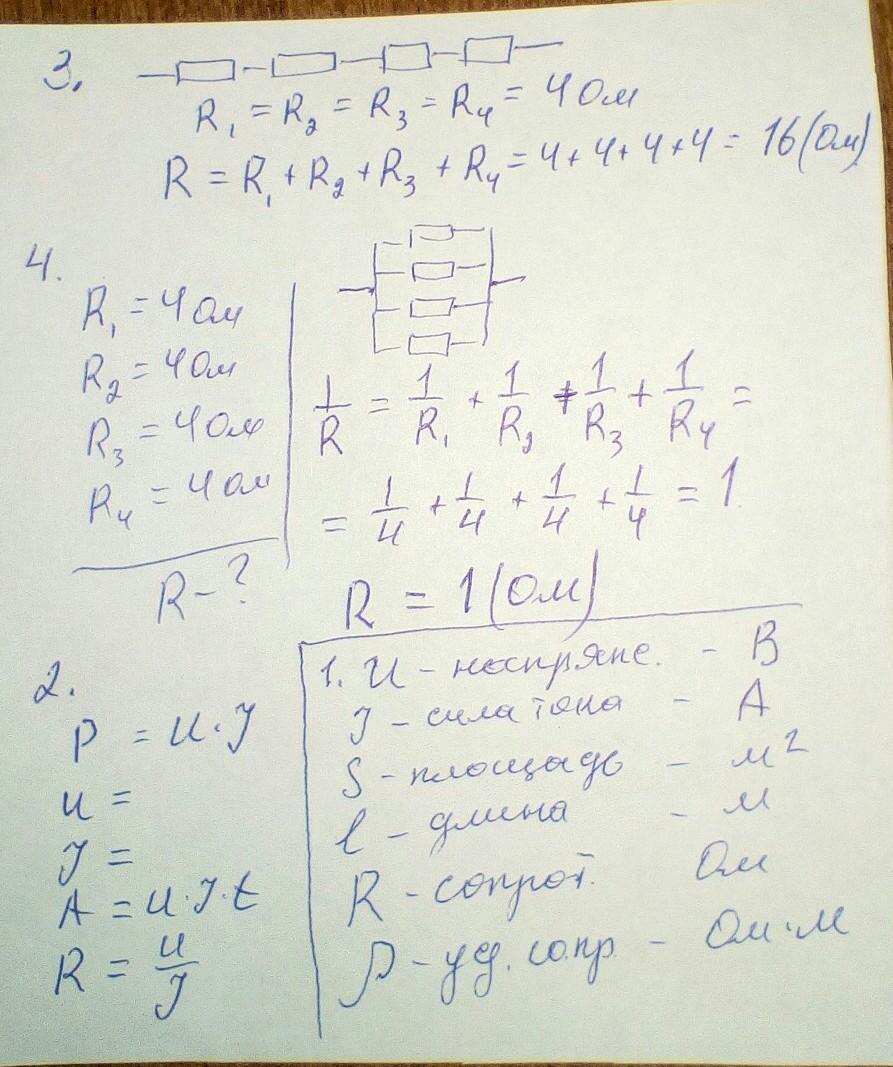 3.
R₁ = R₂ = R₃ = R₄ = 4 Ом
R = R₁ + R₂ + R₃ + R₄ = 4 + 4 + 4 + 4 = 16 (Ом)
4.
R₁ = 4 Ом
R₂ = 4 Ом
R₃ = 4 Ом
R₄ = 4 Ом
R - ?
1/R = 1/R₁ + 1/R₂ + 1/R₃ + 1/R₄ =
= 1/4 + 1/4 + 1/4 + 1/4 = 1
R = 1 (Ом)
2.
P = U · J
U =
J =
A = U · J · t
R = U/J
1. U - напряже. - В
J - сила тока - А
S - площадь - м²
l - длина - м
R - сопрот. Ом
ρ - уд. сопр. - Ом · м